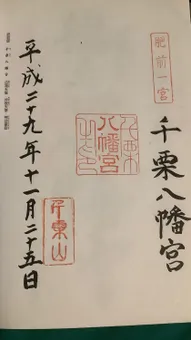 肥前一宮
千栗八幡宮
千栗
八幡宮
平成二十九年十一月二十五日